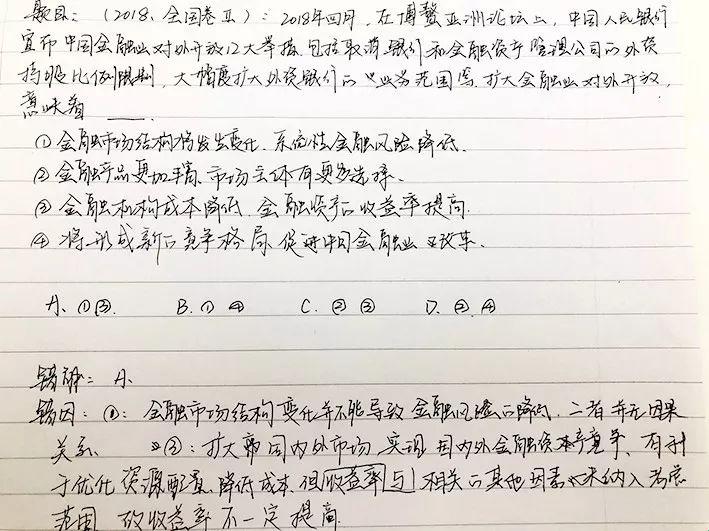 题目：（2018、全国卷Ⅱ）：2018年四月，在博鳌亚洲论坛上，中国人民银行
宣布中国金融业对外开放12大举措，包括取消银行和金融资产管理公司的外资
持股比例限制，大幅度扩大外资银行的业务范围等，扩大金融业对外开放，
意味着 ___.
①金融市场结构将发生变化，系统性金融风险降低.
②金融产品更加丰富、市场主体有更多选择.
③金融机构成本降低，金融资产的收益率提高.
④将形成新的竞争格局，促进中国金融业改革.
A、①③. B、①④ C、②③ D、②④
错解：A
错因：①：金融市场结构变化并不能导致金融风险的降低，二者并无因果
关系. ③：扩大国内外市场，实现国内外金融资本竞争，有利
于优化资源配置、降低成本，但收益率与相关的其他因素未纳入考虑
范围，故收益率不一定提高.